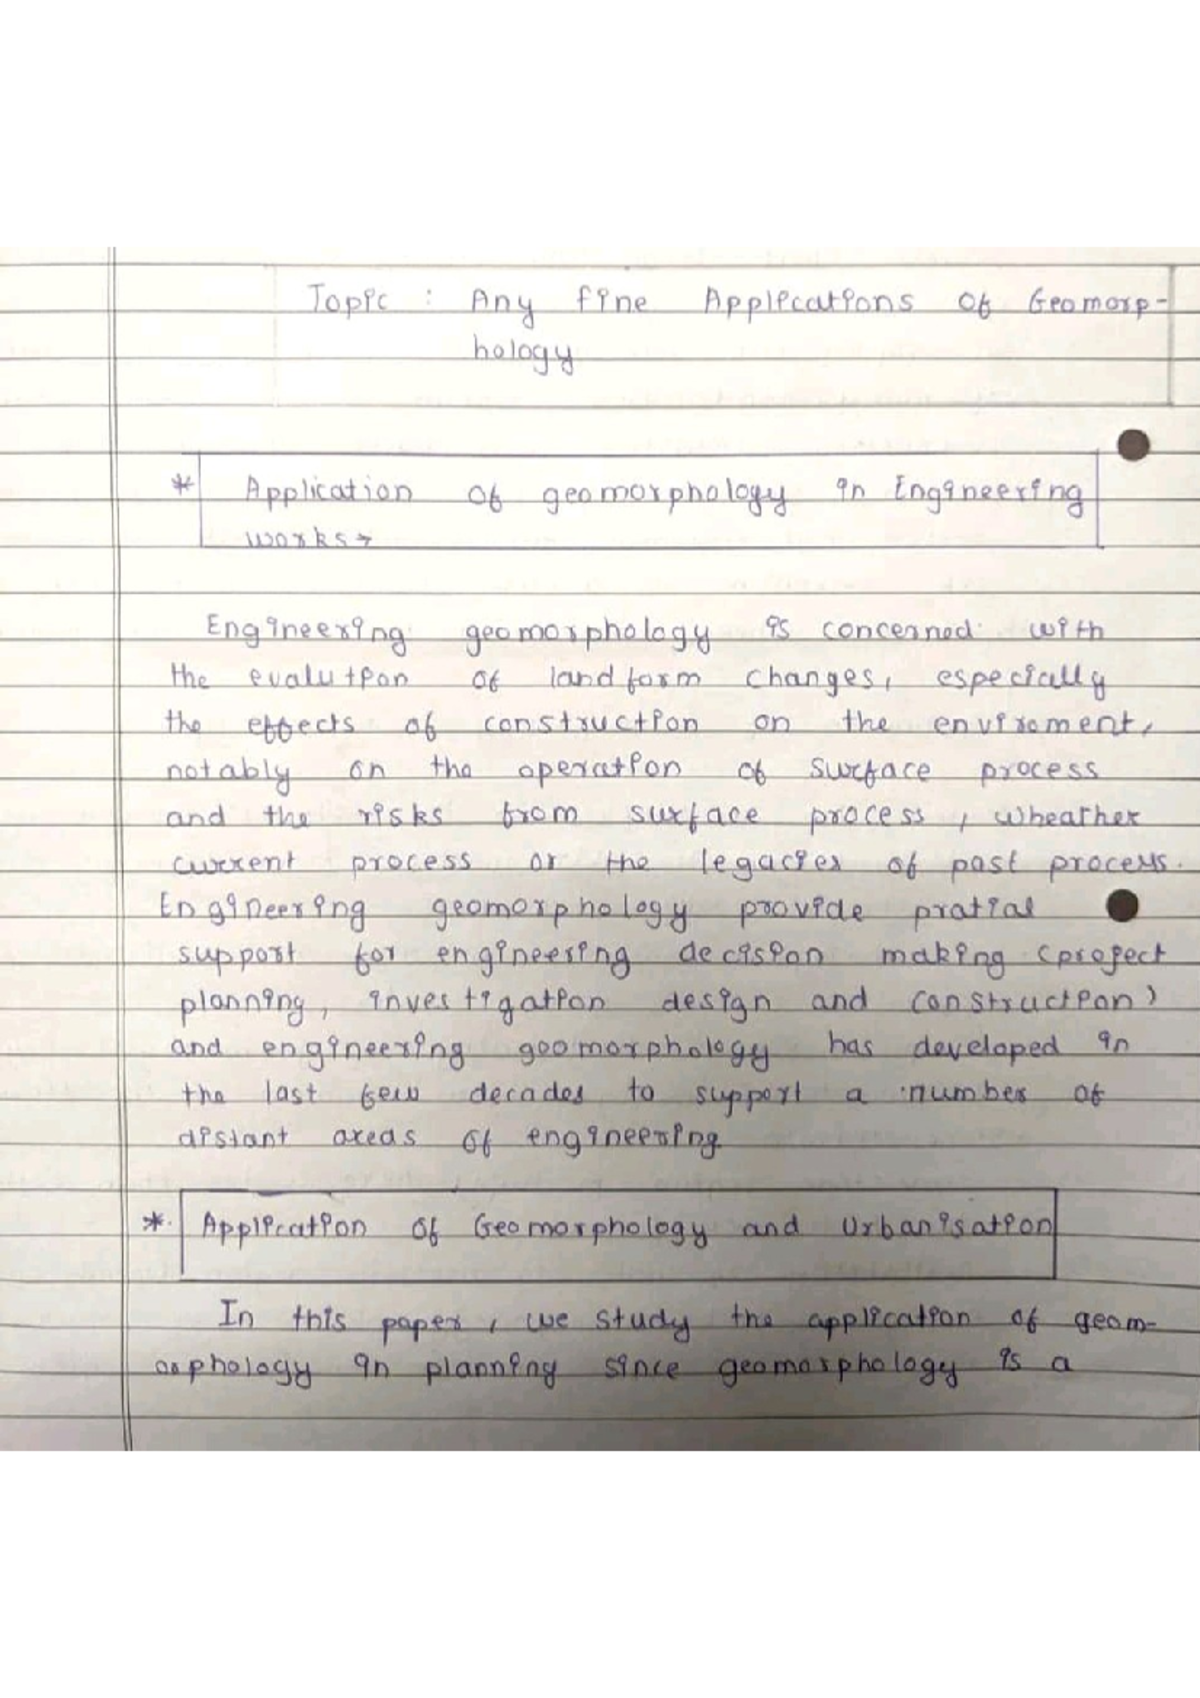 Topic : Any fine Applications of Geomorp-
hology
* Application of geomorphology in Engineering
works→
Engineering geomorphology is concerned with
the evalution of landform changes, especially
the effects of construction on the enviroment,
notably on the operation of surface process
and the risks from surface process, wheather
current process or the legacies of past process.
Engineering geomorphology provide pratial
support for engineering decision making (project
planning, investigation design and construction)
and engineering geomorphology has developed in
the last few decades to support a number of
distant areas of engineering
*. Application of Geomorphology and Urbanisation
In this paper, we study the application of geom-
orphology in planning since geomorphology is a